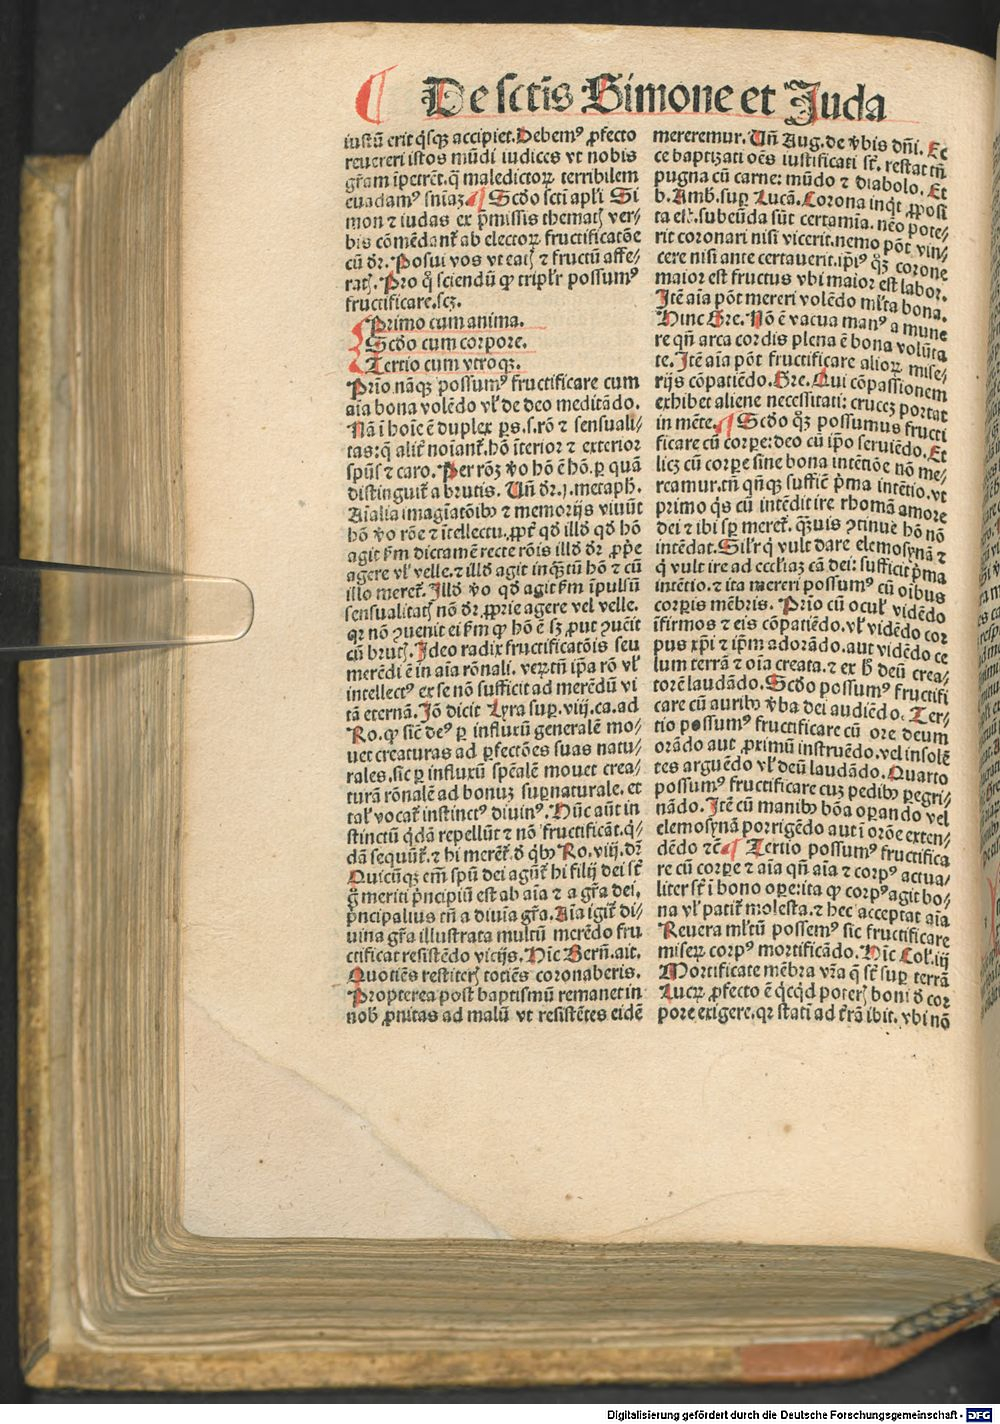 De sctīs Simone et Juda
iustū erit qͥsqꝫ accipiet. Debemꝰ ꝓfecto
reuereri istos mūdi iudices vt nobis
gr̄am īpetrēt. q̄ maledictoꝝ terribilem
euadamꝰ snīaꝫ. ¶ Scd̄o scti apl̄i Si
mon ⁊ iudas ex p̄missis themath̄ ver⸗
bis cōmēdant̄ ab electoꝝ fructificatōe
cū dr̄. Posui vos vt eat̄ꝭ ⁊ fructū affe⸗
rat̄ꝭ. Pro qͦ sciendū ꝙ tripl̄r possumꝰ
fructificare. scꝫ.
Primo cum anima.
Scd̄o cum corpore.
Tertio cum vtroqꝫ.
Prīo nāqꝫ possumꝰ fructificare cum
aīa bona volēdo vl̓ de deo meditādo.
Nā ī hoīe ē duplex ps. s. rō ⁊ sensuali⸗
tas: q̄ alit̓ noīant̄. hō īterior ⁊ exterior
spūs ⁊ caro. Per rōꝫ v̓o hō ē hō. ꝑ quā
distinguit̄ a brutis. Vn̄ dr̄. j. metaph̄.
Aīalia imagīatōibꝰ ⁊ memorijs viuūt
hō v̓o rōe ⁊ ītellectu. ꝓpt̓ qd̓ illd̓ qd̓ hō
agit km̄ dictamē recte rōis illd̓ dr̄ ꝓpͥe
agere vl̓ velle. ⁊ illd̓ agit inqꝫtū hō ⁊ cū
illo meret̄. Illd̓ v̓o qd̓ agit km̄ īpulsū
sensualitat̄ꝭ nō dr̄. ꝓprie agere vel velle.
qꝛ nō ꝯuenit ei km̄ ꝙ hō ē sꝫ ꝓut ꝯuēit
cū brut̄ꝭ. Ideo radix fructificatōis seu
merēdi ē in aīa rōnali. veꝝtn̄ ip̄a rō vl̓
intellectꝰ ex se nō sufficit ad merēdū vi
tā eternā. Jō dicit Lyra sup̄. viij. ca. ad
Ro. ꝙ sic̄ deꝰ ꝑ influxū generalē mo⸗
uet creaturas ad ꝑfectōes suas natu⸗
rales. sic ꝑ influxū spēalē mouet crea⸗
turā rōnalē ad bonuꝫ sup̄naturale. et
tal̓ vocat̄ instinctꝰ diuinꝰ. Hūc aūt in
stinctū qͥdā repellūt ⁊ nō fructificāt. qͥ⸗
dā sequūt̄. ⁊ hi merēt̄. d̓ qͥbꝰ Ro. viij. dr̄
Quicūqꝫ em̄ spū dei agūt̄ hi filij dei st̄
gͦ meriti pͥncipiū est ab aīa ⁊ a gr̄a dei.
pͥncipalius tn̄ a diuīa gr̄a. Aīa igit̄ di⸗
uina gr̄a illustrata multū merēdo fru
ctificat resistēdo vicijs. Hīc Bern̄. ait.
Quotiēs restiter̄ꝭ totiēs coronaberis.
Propterea post baptismū remanet in
nob̄ ꝓnitas ad malū vt resistētes eidē
mereremur. Vn̄ Aug. de v̓bis dn̄i. Ec
ce baptizati oēs iustificati st̄. restat tn̄
pugna cū carne: mūdo ⁊ diabolo. Et
b. Amb. sup̄ Lucā. Corona inqͥt ꝓposi
ta est. subeūda sūt certamīa. nēo pote⸗
rit coronari nisi vicerit. nemo pōt vin⸗
cere nisi ante certauerit. ip̄iꝰ qͦꝫ corone
maior est fructus vbi maior est labor.
Itē aīa pōt mereri volēdo ml̓ta bona.
Hinc Gre. Nō ē vacua manꝰ a mune
re qn̄ arca cordis plena ē bona volūta
te. Itē aīa pōt fructificare alioꝝ mise⸗
rijs cōpatiēdo. Gre. Qui cōpassionem
exhibet aliene necessitati: cruceꝫ portat
in mēte. ¶ Scd̄o qͦꝫ possumus fructi
ficare cū corꝑe: deo cū ip̄o seruiēdo. Et
licꝫ cū corꝑe sine bona intētiōe nō me⸗
reamur. tn̄ qn̄qꝫ suffic̄ pͥma intētio. vt
primo qͥs cū intēdit ire rhomā amore
dei ⁊ ibi sꝑ meret̄. qꝫuis ꝯtinue hō nō
intēdat. Sil̓r qͥ vult dare elemosynā ⁊
qͥ vult ire ad eccl̄iaꝫ cā dei: sufficit pͥma
intētio. ⁊ ita mereri possumꝰ cū oībus
corꝑis mēbris. Prīo cū ocul̓ vidēdo
īfirmos ⁊ eis cōpatiēdo. vl̓ vidēdo cor
pus xp̄i ⁊ ip̄m adorādo. aut vidēdo ce
lum terrā ⁊ oīa creata. ⁊ ex h̄ deū crea⸗
torē laudādo. Scd̄o possumꝰ fructifi
care cū auribꝰ v̓ba dei audiēdo. Ter⸗
tio possumꝰ fructificare cū ore deum
orādo aut ꝓximū instruēdo. vel insolē
tes arguēdo vl̓ deū laudādo. Quarto
possumꝰ fructificare cuꝫ pedibꝰ ꝑegri⸗
nādo. Itē cū manibꝰ bōa oꝑando vel
elemosynā porrigēdo aut ī orōe exten⸗
dēdo ⁊c̄ ¶ Tertio possumꝰ fructifica
re cū corꝑe ⁊ aīa qn̄ aīa ⁊ corpꝰ actua⸗
liter st̄ ī bono oꝑe: ita ꝙ corpꝰ agit bo⸗
na vl̓ patit̄ molesta. ⁊ hec acceptat aīa
Reuera ml̓tū possemꝰ sic fructificare
miseꝝ corpꝰ mortificādo. Hīc Col̓. iij
Mortificate mēbra vr̄a q̄ st̄ sup̄ terrā
Lucꝝ ꝓfecto ē qͥcqͥd poter̄ꝭ boni d̓ cor
pore exigere. qꝛ statī ad t̓rā ibit. vbi nō
Digitalisierung gefördert durch die Deutsche Forschungsgemeinschaft - DFG